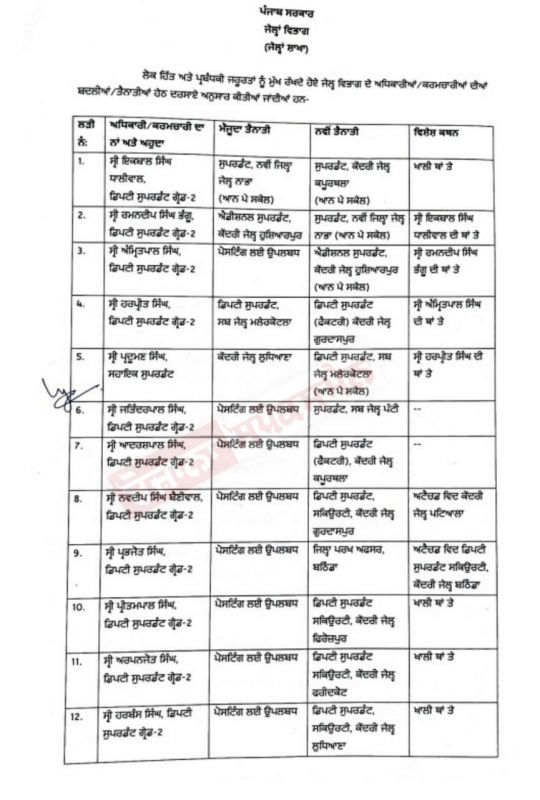 ਪੰਜਾਬ ਸਰਕਾਰ
ਜੇਲ੍ਹਾਂ ਵਿਭਾਗ
(ਜੇਲ੍ਹਾਂ ਸ਼ਾਖਾ)
ਲੋਕ ਹਿੱਤ ਅਤੇ ਪ੍ਰਬੰਧਕੀ ਜਰੂਰਤਾਂ ਨੂੰ ਮੁੱਖ ਰੱਖਦੇ ਹੋਏ ਜੇਲ੍ਹ ਵਿਭਾਗ ਦੇ ਅਧਿਕਾਰੀਆਂ/ਕਰਮਚਾਰੀਆਂ ਦੀਆਂ
ਬਦਲੀਆਂ/ਤੈਨਾਤੀਆਂ ਹੇਠ ਦਰਸਾਏ ਅਨੁਸਾਰ ਕੀਤੀਆਂ ਜਾਂਦੀਆਂ ਹਨ-
ਲੜੀ ਅਧਿਕਾਰੀ/ਕਰਮਚਾਰੀ ਦਾ ਮੌਜੂਦਾ ਤੈਨਾਤੀ ਨਵੀਂ ਤੈਨਾਤੀ ਵਿਸ਼ੇਸ਼ ਕਥਨ
ਨੰ: ਨਾਂ ਅਤੇ ਅਹੁਦਾ
1. ਸ੍ਰੀ ਇਕਬਾਲ ਸਿੰਘ ਸੁਪਰਡੰਟ, ਨਵੀਂ ਜਿਲ੍ਹਾ ਸੁਪਰਡੰਟ, ਕੇਂਦਰੀ ਜੇਲ੍ਹ ਖਾਲੀ ਥਾਂ ਤੇ
ਧਾਲੀਵਾਲ, ਜੇਲ੍ਹ ਨਾਭਾ ਕਪੂਰਥਲਾ
ਡਿਪਟੀ ਸੁਪਰਡੰਟ ਗ੍ਰੇਡ-2 (ਆਨ ਪੇ ਸਕੇਲ) (ਆਨ ਪੇ ਸਕੇਲ)
2. ਸ੍ਰੀ ਰਮਨਦੀਪ ਸਿੰਘ ਭੰਗੂ, ਐਡੀਸ਼ਨਲ ਸੁਪਰਡੰਟ, ਸੁਪਰਡੰਟ, ਨਵੀਂ ਜਿਲ੍ਹਾ ਜੇਲ੍ਹ ਸ੍ਰੀ ਇਕਬਾਲ ਸਿੰਘ
ਡਿਪਟੀ ਸੁਪਰਡੰਟ ਗ੍ਰੇਡ-2 ਕੇਂਦਰੀ ਜੇਲ੍ਹ ਹੁਸ਼ਿਆਰਪੁਰ ਨਾਭਾ (ਆਨ ਪੇ ਸਕੇਲ) ਧਾਲੀਵਾਲ ਦੀ ਥਾਂ ਤੇ
3. ਸ੍ਰੀ ਅੰਮ੍ਰਿਤਪਾਲ ਸਿੰਘ, ਪੋਸਟਿੰਗ ਲਈ ਉਪਲਬਧ ਐਡੀਸ਼ਨਲ ਸੁਪਰਡੰਟ, ਸ੍ਰੀ ਰਮਨਦੀਪ ਸਿੰਘ
ਡਿਪਟੀ ਸੁਪਰਡੰਟ ਗ੍ਰੇਡ-2 ਕੇਂਦਰੀ ਜੇਲ੍ਹ ਹੁਸ਼ਿਆਰਪੁਰ ਭੰਗੂ ਦੀ ਥਾਂ ਤੇ
(ਆਨ ਪੇ ਸਕੇਲ)
4. ਸ੍ਰੀ ਹਰਪ੍ਰੀਤ ਸਿੰਘ, ਡਿਪਟੀ ਸੁਪਰਡੰਟ, ਡਿਪਟੀ ਸੁਪਰਡੰਟ ਸ੍ਰੀ ਅੰਮ੍ਰਿਤਪਾਲ ਸਿੰਘ
ਡਿਪਟੀ ਸੁਪਰਡੰਟ ਗ੍ਰੇਡ-2 ਸਬ ਜੇਲ੍ਹ ਮਲੇਰਕੋਟਲਾ (ਫੈਕਟਰੀ) ਕੇਂਦਰੀ ਜੇਲ੍ਹ ਦੀ ਥਾਂ ਤੇ
ਗੁਰਦਾਸਪੁਰ
5. ਸ੍ਰੀ ਪ੍ਰਦੂਮਣ ਸਿੰਘ, ਕੇਂਦਰੀ ਜੇਲ੍ਹ ਲੁਧਿਆਣਾ ਡਿਪਟੀ ਸੁਪਰਡੰਟ, ਸਬ ਸ੍ਰੀ ਹਰਪ੍ਰੀਤ ਸਿੰਘ ਦੀ
ਸਹਾਇਕ ਸੁਪਰਡੰਟ ਜੇਲ੍ਹ ਮਲੇਰਕੋਟਲਾ ਥਾਂ ਤੇ
(ਆਨ ਪੇ ਸਕੇਲ)
6. ਸ੍ਰੀ ਜਤਿੰਦਰਪਾਲ ਸਿੰਘ, ਪੋਸਟਿੰਗ ਲਈ ਉਪਲਬਧ ਸੁਪਰਡੰਟ, ਸਬ ਜੇਲ੍ਹ ਪੱਟੀ --
ਡਿਪਟੀ ਸੁਪਰਡੰਟ ਗ੍ਰੇਡ-2
7. ਸ੍ਰੀ ਆਦਰਸ਼ਪਾਲ ਸਿੰਘ, ਪੋਸਟਿੰਗ ਲਈ ਉਪਲਬਧ ਡਿਪਟੀ ਸੁਪਰਡੰਟ --
ਡਿਪਟੀ ਸੁਪਰਡੰਟ ਗ੍ਰੇਡ-2 (ਫੈਕਟਰੀ), ਕੇਂਦਰੀ ਜੇਲ੍ਹ
ਕਪੂਰਥਲਾ
8. ਸ੍ਰੀ ਨਵਦੀਪ ਸਿੰਘ ਬੈਣੀਵਾਲ, ਪੋਸਟਿੰਗ ਲਈ ਉਪਲਬਧ ਡਿਪਟੀ ਸੁਪਰਡੰਟ, ਅਟੈਚਡ ਵਿਦ ਕੇਂਦਰੀ
ਡਿਪਟੀ ਸੁਪਰਡੰਟ ਗ੍ਰੇਡ-2 ਸਕਿਉਰਟੀ, ਕੇਂਦਰੀ ਜੇਲ੍ਹ ਜੇਲ੍ਹ ਪਟਿਆਲਾ
ਗੁਰਦਾਸਪੁਰ
9. ਸ੍ਰੀ ਪ੍ਰਭਜੋਤ ਸਿੰਘ, ਪੋਸਟਿੰਗ ਲਈ ਉਪਲਬਧ ਜਿਲ੍ਹਾ ਪਰਖ ਅਫਸਰ, ਅਟੈਚਡ ਵਿਦ ਡਿਪਟੀ
ਡਿਪਟੀ ਸੁਪਰਡੰਟ ਗ੍ਰੇਡ-2 ਬਠਿੰਡਾ ਸੁਪਰਡੰਟ ਸਕਿਉਰਟੀ,
ਕੇਂਦਰੀ ਜੇਲ੍ਹ ਬਠਿੰਡਾ
10. ਸ੍ਰੀ ਪ੍ਰੀਤਮਪਾਲ ਸਿੰਘ, ਪੋਸਟਿੰਗ ਲਈ ਉਪਲਬਧ ਡਿਪਟੀ ਸੁਪਰਡੰਟ ਖਾਲੀ ਥਾਂ ਤੇ
ਡਿਪਟੀ ਸੁਪਰਡੰਟ ਗ੍ਰੇਡ-2 ਸਕਿਉਰਟੀ, ਕੇਂਦਰੀ ਜੇਲ੍ਹ
ਫਿਰੋਜ਼ਪੁਰ
11. ਸ੍ਰੀ ਅਰਪਨਜੋਤ ਸਿੰਘ, ਪੋਸਟਿੰਗ ਲਈ ਉਪਲਬਧ ਡਿਪਟੀ ਸੁਪਰਡੰਟ ਖਾਲੀ ਥਾਂ ਤੇ
ਡਿਪਟੀ ਸੁਪਰਡੰਟ ਗ੍ਰੇਡ-2 ਸਕਿਉਰਟੀ, ਕੇਂਦਰੀ ਜੇਲ੍ਹ
ਫਰੀਦਕੋਟ
12. ਸ੍ਰੀ ਹਰਬੰਸ ਸਿੰਘ, ਡਿਪਟੀ ਪੋਸਟਿੰਗ ਲਈ ਉਪਲਬਧ ਡਿਪਟੀ ਸੁਪਰਡੰਟ, ਖਾਲੀ ਥਾਂ ਤੇ
ਸੁਪਰਡੰਟ ਗ੍ਰੇਡ-2 ਸਕਿਉਰਟੀ, ਕੇਂਦਰੀ ਜੇਲ੍ਹ
ਲੁਧਿਆਣਾ